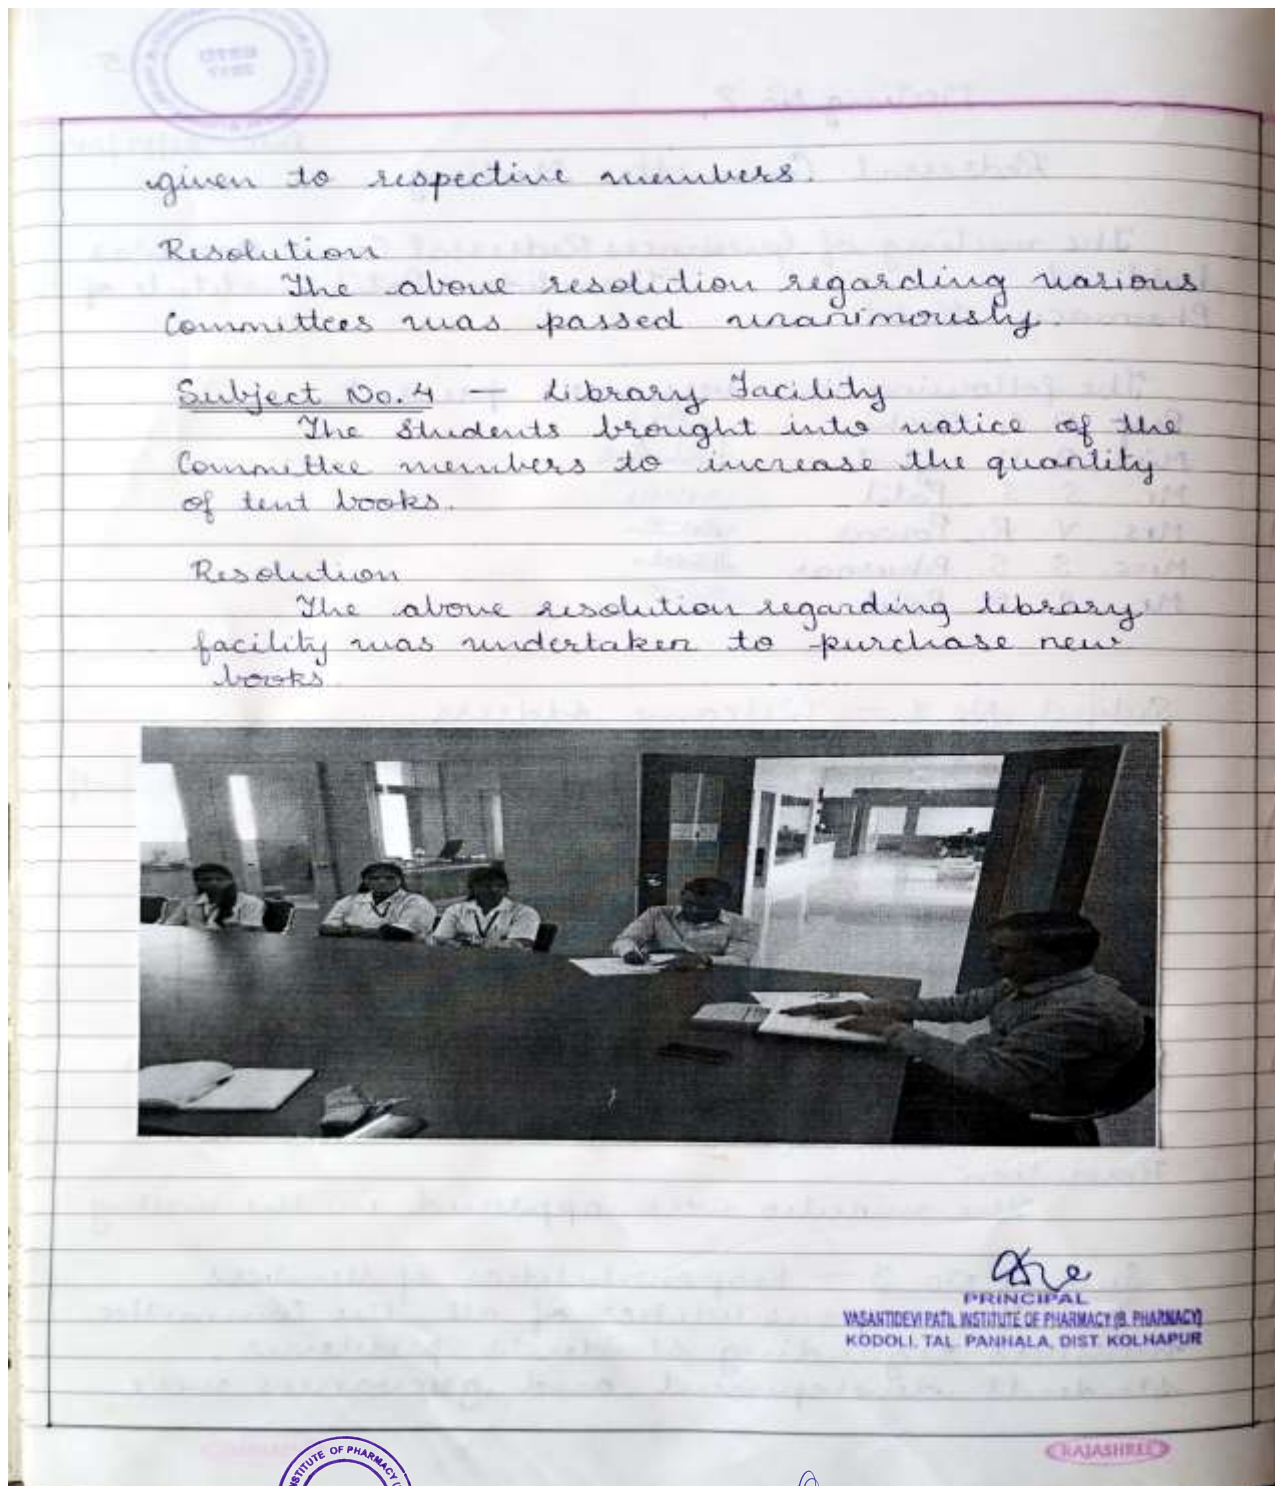 given to respective members.
Resolution
The above resolution regarding various
Committees was passed unanimously.
Subject No. 4 — Library Facility
The Students brought into notice of the
Committee members to increase the quantity
of text books.
Resolution
The above resolution regarding library
facility was undertaken to purchase new
books
PRINCIPAL
VASANTIDEVI PATIL INSTITUTE OF PHARMACY (B. PHARMACY)
KODOLI, TAL. PANHALA, DIST. KOLHAPUR
RAJASHREE
INSTITUTE OF PHARMACY